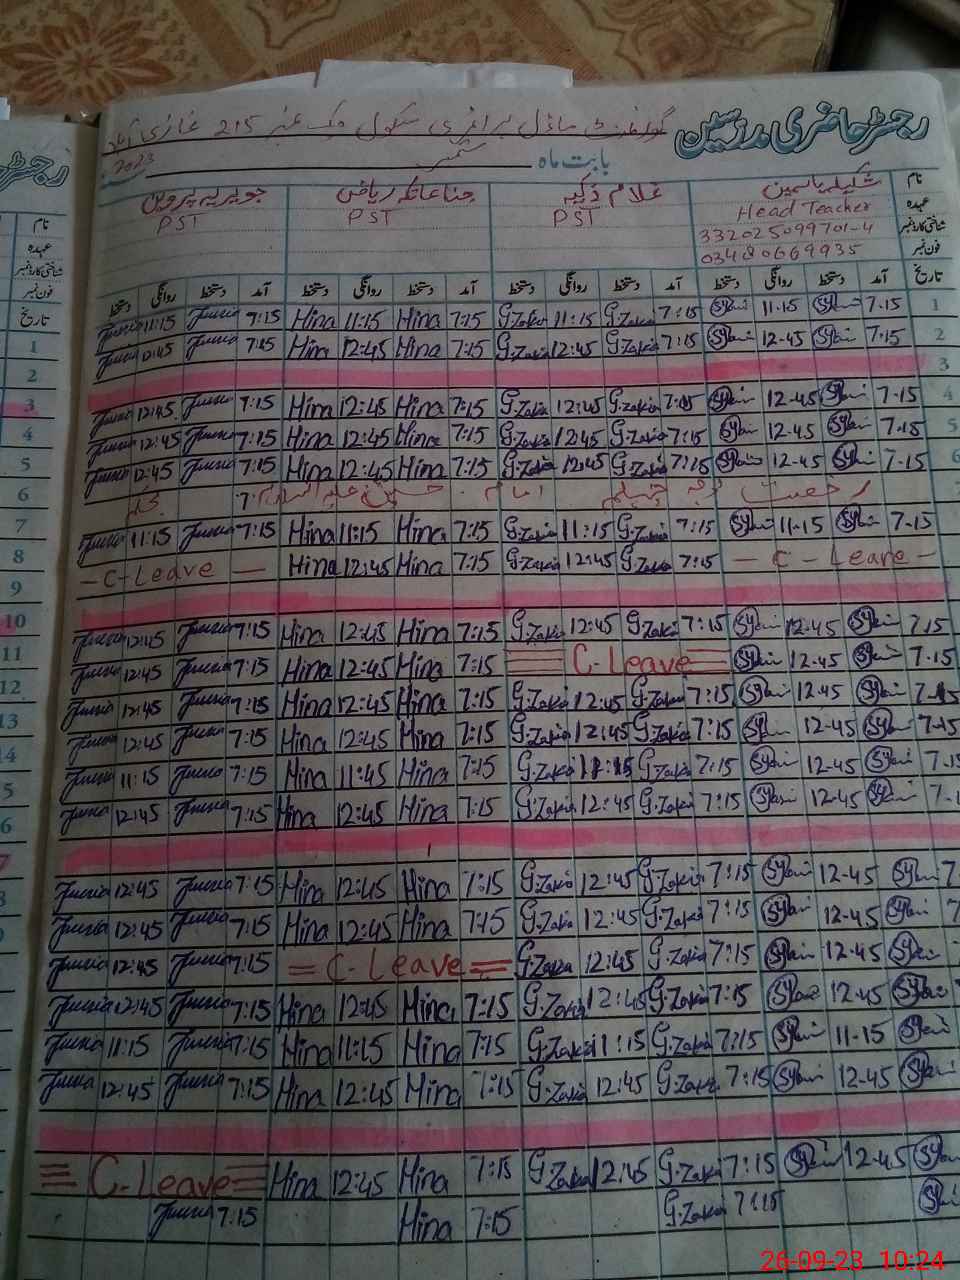 رجسٹر حاضری مدرسین
گورنمنٹ ماڈل پرائمری سکول چک نمبر 215 غازی آباد
بابت ماہ ستمبر 2023
نام شکیلہ یاسمین غلام ذکیہ حنا عاتکہ ریاض جویریہ پروین
عہدہ Head Teacher PST PST PST
شناختی کارڈ نمبر 332025099701-4
فون نمبر 03480669935
تاریخ آمد دستخط روانگی دستخط آمد دستخط روانگی دستخط آمد دستخط روانگی دستخط آمد دستخط روانگی دستخط
1 7.15 11.15 7:15 G.Zakia 11:15 G.Zakia 7:15 Hina 11:15 Hina 7:15 Juvria 11:15 Juvria
2 7.15 12-45 7:15 G.Zakia 12:45 G.Zakia 7:15 Hina 12:45 Hina 7:15 Juvria 12:45 Juvria
3
4 7.15 12-45 7:15 G.Zakia 12:45 G.Zakia 7:15 Hina 12:45 Hina 7:15 Juvria 12:45 Juvria
5 7.15 12-45 7:15 G.Zakia 12:45 G.Zakia 7:15 Hina 12:45 Hina 7:15 Juvria 12:45 Juvria
6 7-15 12-45 7:15 G.Zakia 12:45 G.Zakia 7:15 Hina 12:45 Hina 7:15 Juvria 12:45 Juvria
7 رخصت چہلم امام حسین علیہ السلام
7-15 11-15 7:15 G.Zakia 11:15 G.Zakia 7:15 Hina 11:15 Hina 7:15 Juvria 11:15 Juvria
– C - Leave – 7:15 G.Zakia 12:45 G.Zakia 7:15 Hina 12:45 Hina – C-Leave –
7.15 12-45 7:15 G.Zakia 12:45 G.Zakia 7:15 Hina 12:45 Hina 7:15 Juvria 12:45 Juvria
7-15 12-45 C-Leave 7:15 Hina 12:45 Hina 7:15 Juvria 12:45 Juvria
7-15 12-45 7:15 G.Zakia 12:45 G.Zakia 7:15 Hina 12:45 Hina 7:15 Juvria 12:45 Juvria
7-15 12-45 7:15 G.Zakia 12:45 G.Zakia 7:15 Hina 12:45 Hina 7:15 Juvria 12:45 Juvria
12-45 7:15 G.Zakia 11:15 G.Zakia 7:15 Hina 11:45 Hina 7:15 Juvria 11:15 Juvria
12-45 7:15 G.Zakia 12:45 G.Zakia 7:15 Hina 12:45 Hina 7:15 Juvria 12:45 Juvria
12-45 7:15 G.Zakia 12:45 G.Zakia 7:15 Hina 12:45 Hina 7:15 Juvria 12:45 Juvria
12-45 7:15 G.Zakia 12:45 G.Zakia 7:15 Hina 12:45 Hina 7:15 Juvria 12:45 Juvria
12-45 7:15 G.Zakia 12:45 G.Zakia = C-Leave = 7:15 Juvria 12:45 Juvria
12-45 7:15 G.Zakia 12:45 G.Zakia 7:15 Hina 12:45 Hina 7:15 Juvria 12:45 Juvria
11-15 7:15 G.Zakia 11:15 G.Zakia 7:15 Hina 11:15 Hina 7:15 Juvria 11:15 Juvria
12-45 7:15 G.Zakia 12:45 G.Zakia 7:15 Hina 12:45 Hina 7:15 Juvria 12:45 Juvria
12-45 7:15 G.Zakia 12:45 G.Zakia 7:15 Hina 12:45 Hina C-Leave
7:15 G.Zakia 7:15 Hina 7:15 Juvria
26-09-23 10:24